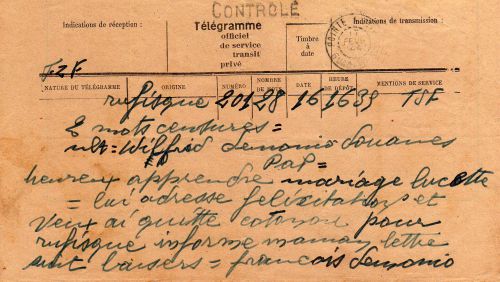 CONTROLÉ
Indications de réception :
Télégramme
officiel
de service
transit
privé
Timbre
à
date
Indications de transmission :
POINTE
NATURE DU TÉLÉGRAMME
ORIGINE
NUMÉRO
NOMBRE
DE MOTS
DATE
HEURE
DE DÉPÔT
MENTIONS DE SERVICE
rufisque 201 28 16 1639 TSF
2 mots censures =
nlt = Wilfrid Lemonio douanes
PaP =
heureux apprendre mariage lucette
= lui adresse felixitations et
veux ai quitte cotonou pour
rufisque informe maman lettre
suit baisers = francois Lemonio